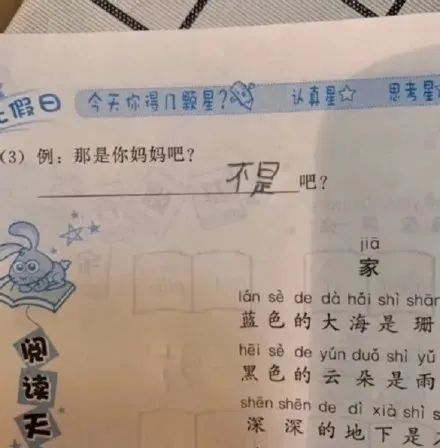 假日 今天你得几颗星? 认真星☆ 思考星
(3) 例：那是你妈妈吧？
不是吧？
jiā
家
lán sè de dà hǎi shì shān
蓝色的大海是珊
hēi sè de yún duǒ shì yǔ
黑色的云朵是雨
shēn shēn de dì xià shì
深深的地下是
阅读天